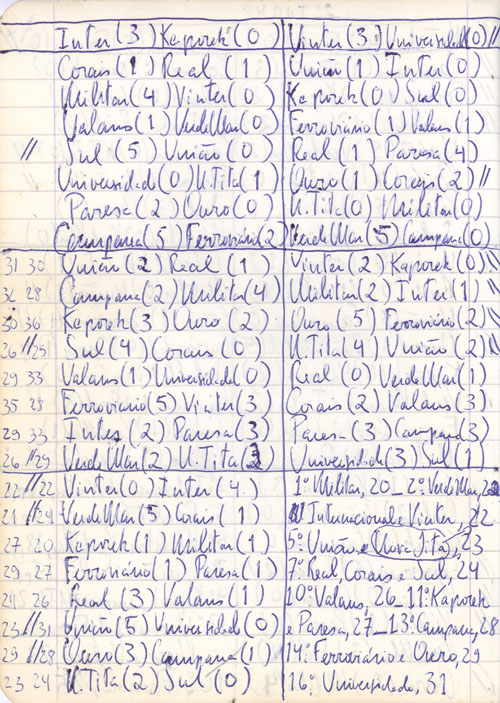 Inter (3) Kaporek (0) Vinter (3) Universidad (0) //
Corais (1) Real (1) União (1) Inter (0)
Militar (4) Vinter (0) Kaporek (0) Sul (0)
Valans (1) VerdeMar (0) Ferroviário (1) Valans (1)
// Sul (5) União (0) Real (1) Paresa (4)
Universidade (0) U.Tita (1) Ouro (1) Corais (2) //
Paresa (2) Ouro (0) U.Tita (0) Militar (0)
Campana (5) Ferroviário (2) VerdeMar (5) Campana (0)
31 30 União (2) Real (1) Vinter (2) Kaporek (0) \\
28 Campana (2) Militar (4) Militar (2) Inter (1) \\
36 Kaporek (3) Ouro (2) Ouro (5) Ferroviário (2) \\
26 // 25 Sul (4) Corais (0) U.Tita (4) União (2) \\
29 33 Valans (1) Universidade (0) Real (0) VerdeMar (1)
35 Ferroviario (5) Vinter (3) Corais (2) Valans (3)
29 33 Inter (2) Paresa (3) Paresa (3) Campana (3)
26 // 29 VerdeMar (2) U.Tita Universidade (3) Sul (1)
22 // 22 Vinter (0) Inter (4) 1º Militar, 20 _ 2º VerdeMar,
21 // 24 VerdeMar (5) Corais (1) Internacional e Vinter, 22
27 20 Kaporek (1) Militar (1) 5º União e 23
29 27 Ferroviário (1) Paresa (1) 7º Real, Corais e Sul, 24
24 26 Real (3) Valans (1) 10º Valans, 26 _ 11º Kaporek
23 // 31 União (5) Universidade (0) e Paresa, 27 _ 13º Campana, 28
29 // 28 Ouro (3) Campana (1) 14º Ferroviário e Ouro, 29
23 24 U.Tita (2) Sul (0) 16º Universidade, 31